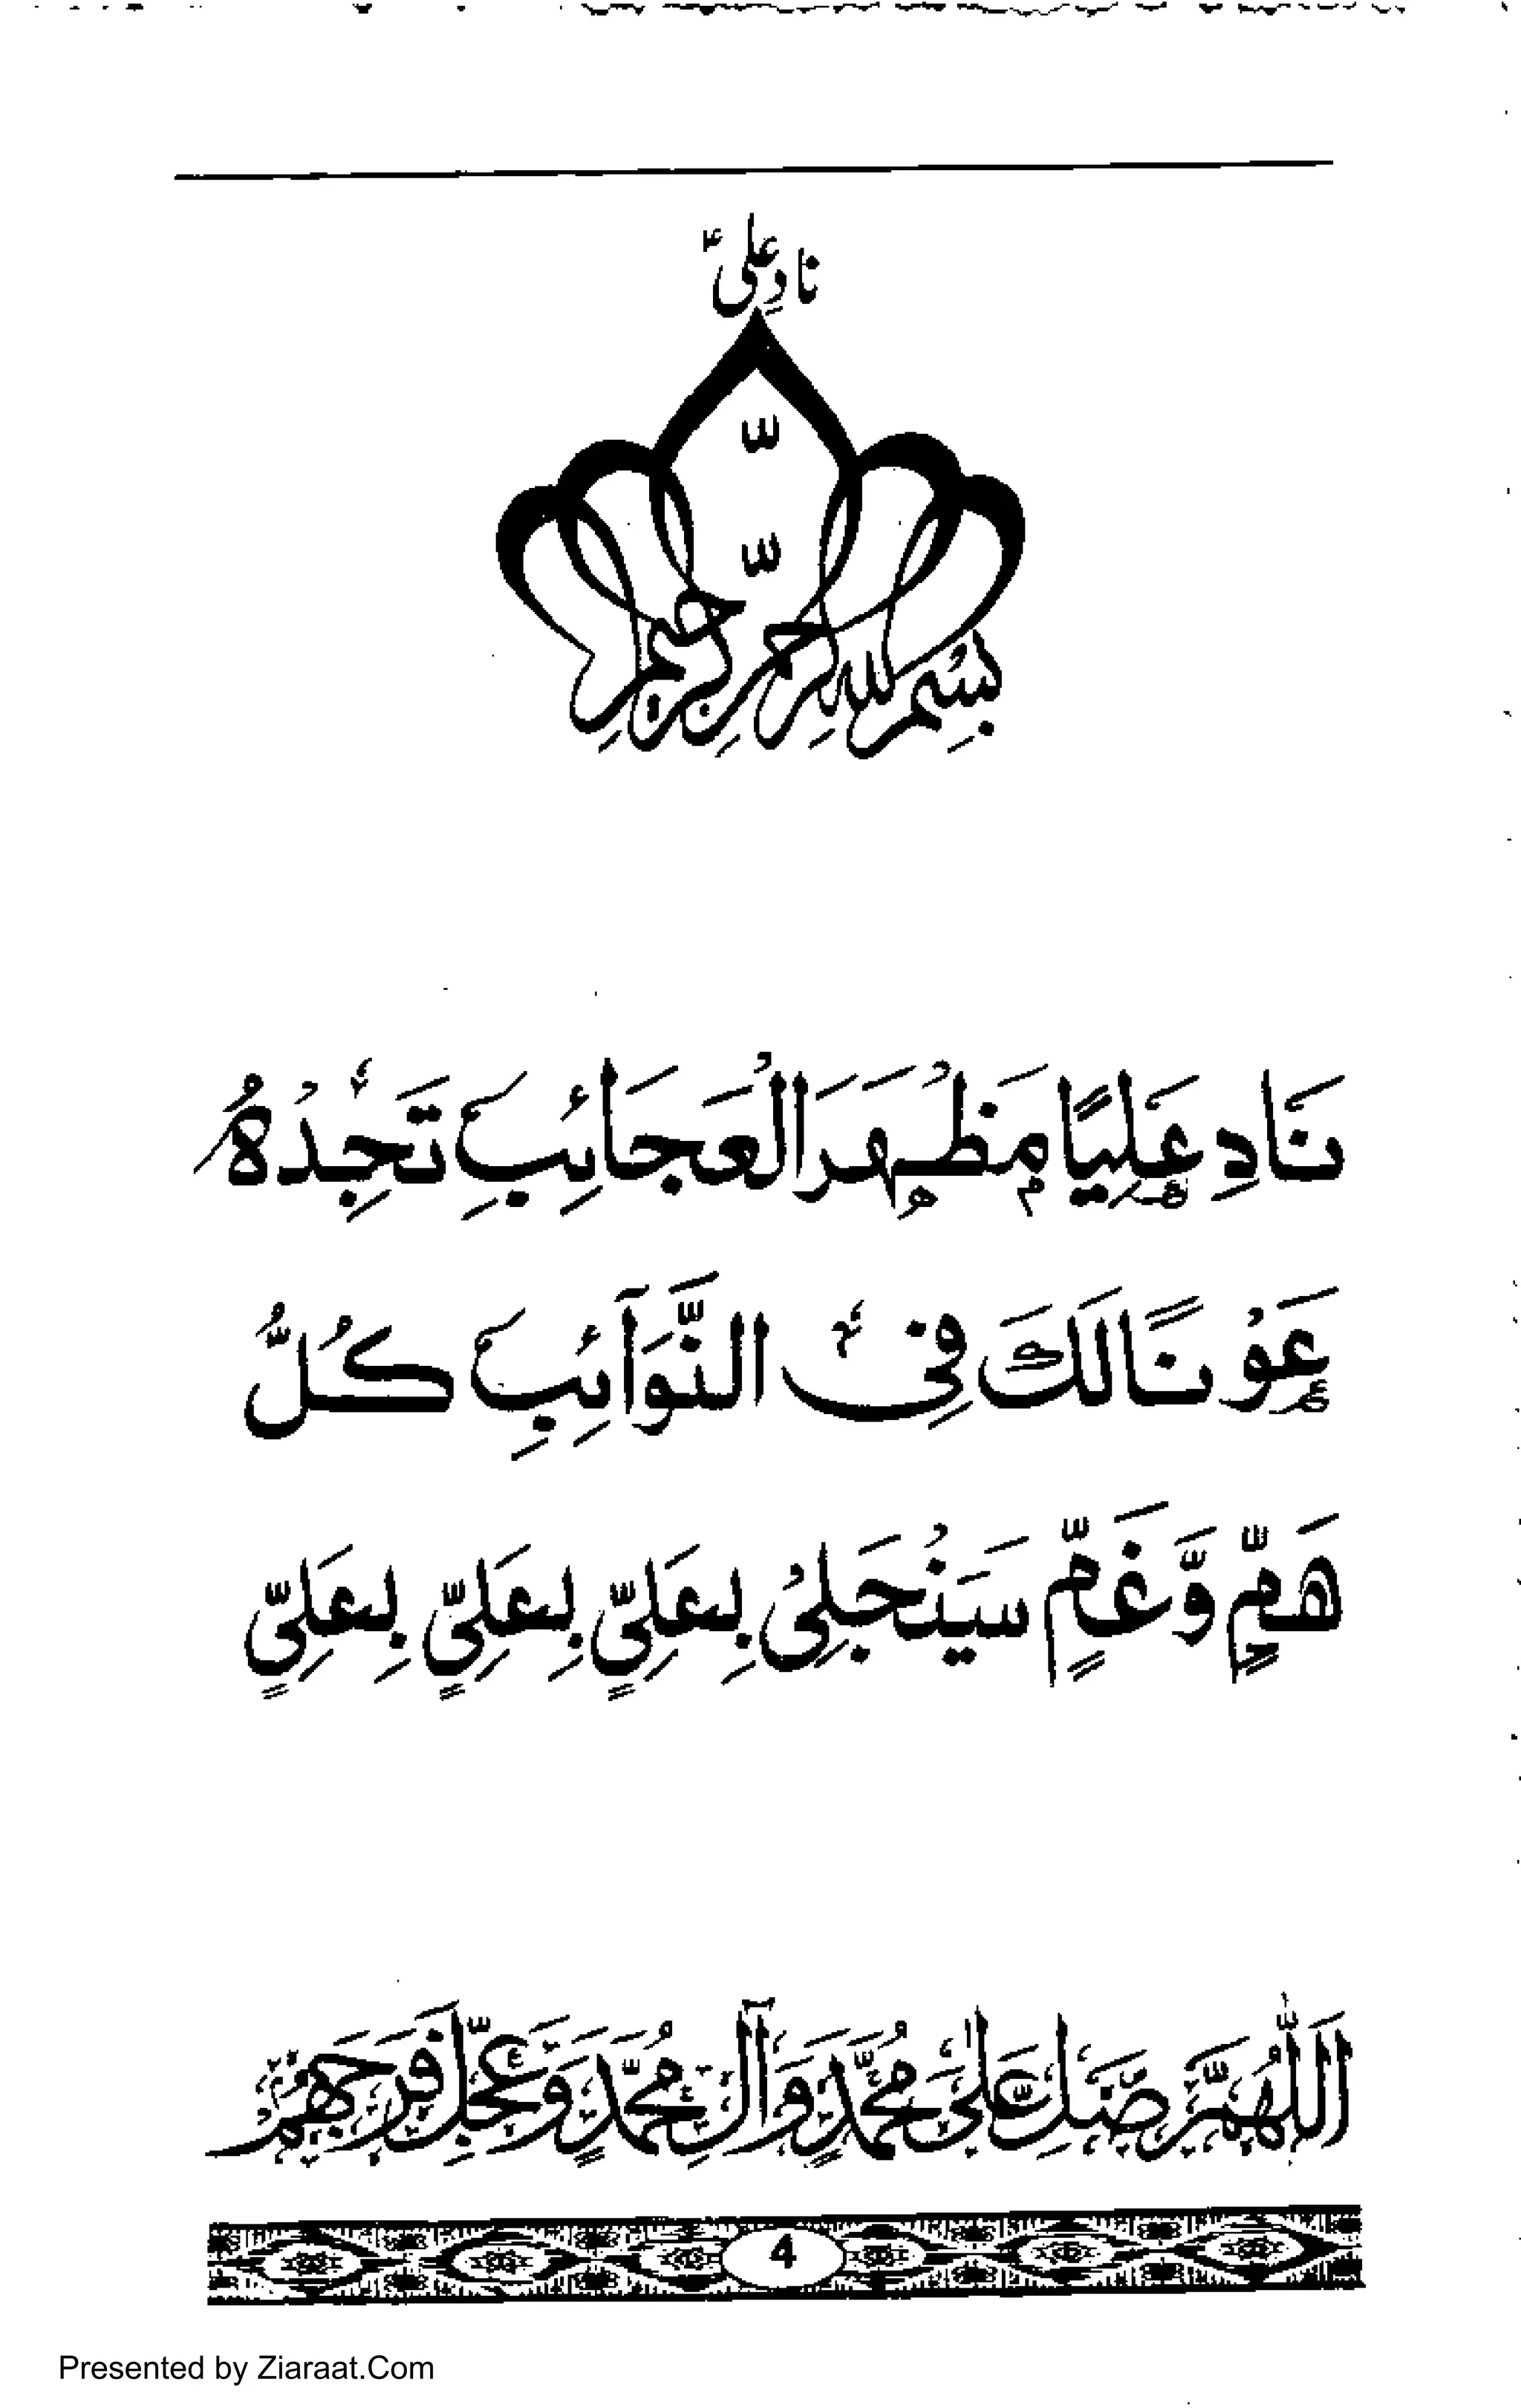 نادِ علیؑ
بِسْمِ اللهِ الرَّحْمٰنِ الرَّحِیْمِ
نَادِ عَلِيًّا مَظْهَرَ الْعَجَائِبِ تَجِدْهُ
عَوْنًا لَكَ فِي النَّوَآئِبِ كُلُّ
هَمٍّ وَّغَمٍّ سَيَنْجَلِيْ بِعَلِيٍّ بِعَلِيٍّ بِعَلِيٍّ
اَللّٰهُمَّ صَلِّ عَلٰى مُحَمَّدٍ وَآلِ مُحَمَّدٍ وَعَجِّلْ فَرَجَهُمْ
4
Presented by Ziaraat.Com